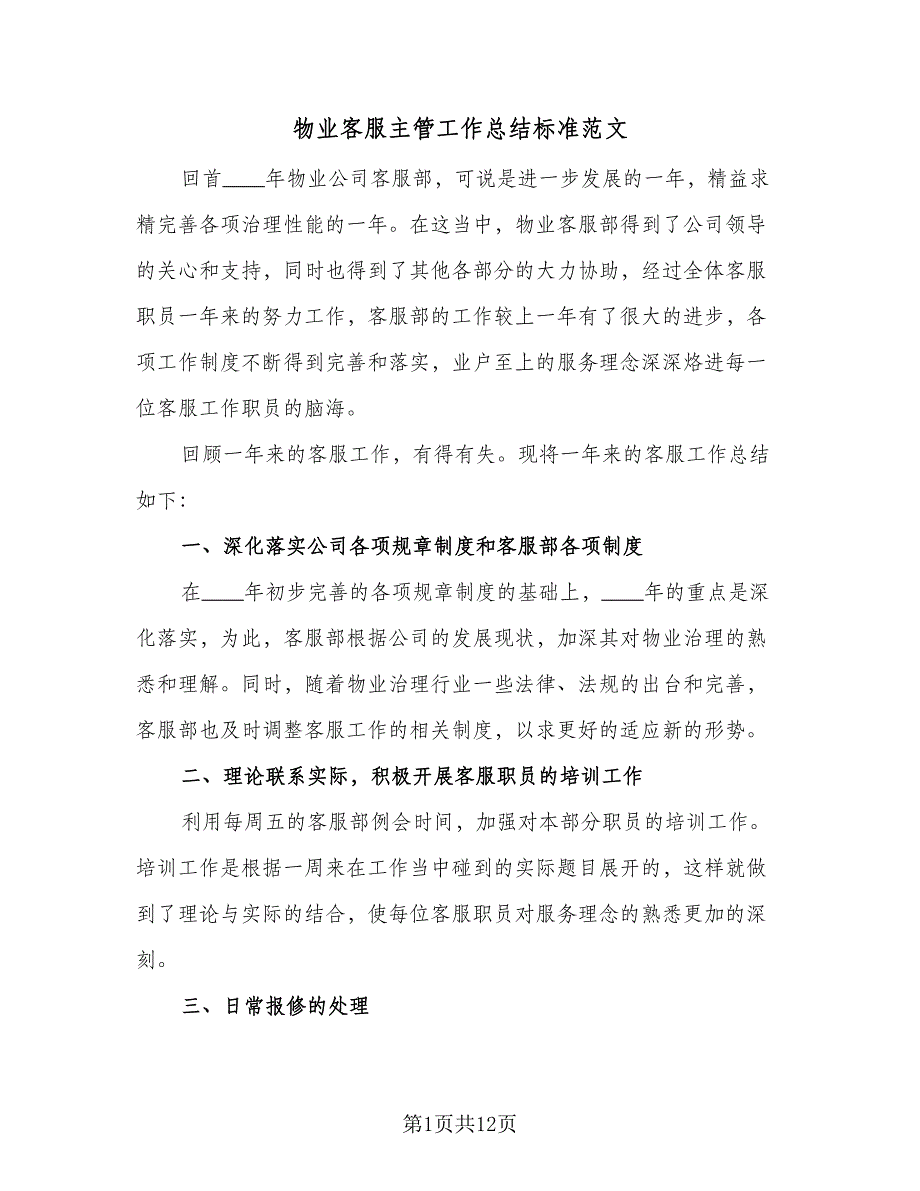 物业客服主管工作总结标准范文
回首____年物业公司客服部，可说是进一步发展的一年，精益求
精完善各项治理性能的一年。在这当中，物业客服部得到了公司领导
的关心和支持，同时也得到了其他各部分的大力协助，经过全体客服
职员一年来的努力工作，客服部的工作较上一年有了很大的进步，各
项工作制度不断得到完善和落实，业户至上的服务理念深深烙进每一
位客服工作职员的脑海。
回顾一年来的客服工作，有得有失。现将一年来的客服工作总结
如下：
一、深化落实公司各项规章制度和客服部各项制度
在____年初步完善的各项规章制度的基础上，____年的重点是深
化落实，为此，客服部根据公司的发展现状，加深其对物业治理的熟
悉和理解。同时，随着物业治理行业一些法律、法规的出台和完善，
客服部也及时调整客服工作的相关制度，以求更好的适应新的形势。
二、理论联系实际，积极开展客服职员的培训工作
利用每周五的客服部例会时间，加强对本部分职员的培训工作。
培训工作是根据一周来在工作当中碰到的实际题目展开的，这样就做
到了理论与实际的结合，使每位客服职员对服务理念的熟悉更加的深
刻。
三、日常报修的处理
第1页共12页